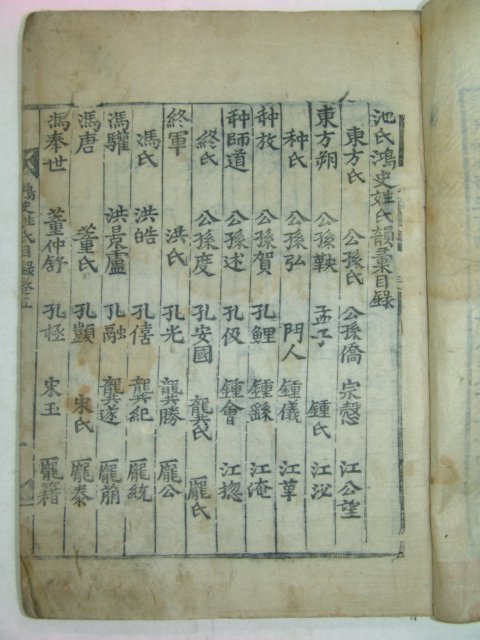 池氏鴻史姓氏韻彙目錄
東方氏 公孫氏 公孫僑 宗慤 江公望
東方朔 公孫鞅 孟子 鍾氏 江泌
种氏 公孫弘 門人 鍾儀 江革
种放 公孫賀 孔鯉 鍾繇 江淹
种師道 公孫述 孔伋 鍾會 江揔
終氏 公孫度 孔安國 龔氏 龐氏
終軍 洪氏 孔光 龔勝 龐公
馮氏 洪皓 孔僖 龔紀 龐統
馮驩 洪景盧 孔融 龔遂 龐萌
馮唐 董氏 孔顗 宋氏 龐
馮奉世 董仲舒 孔極 宋玉 龐籍
鴻史姓氏目錄卷五